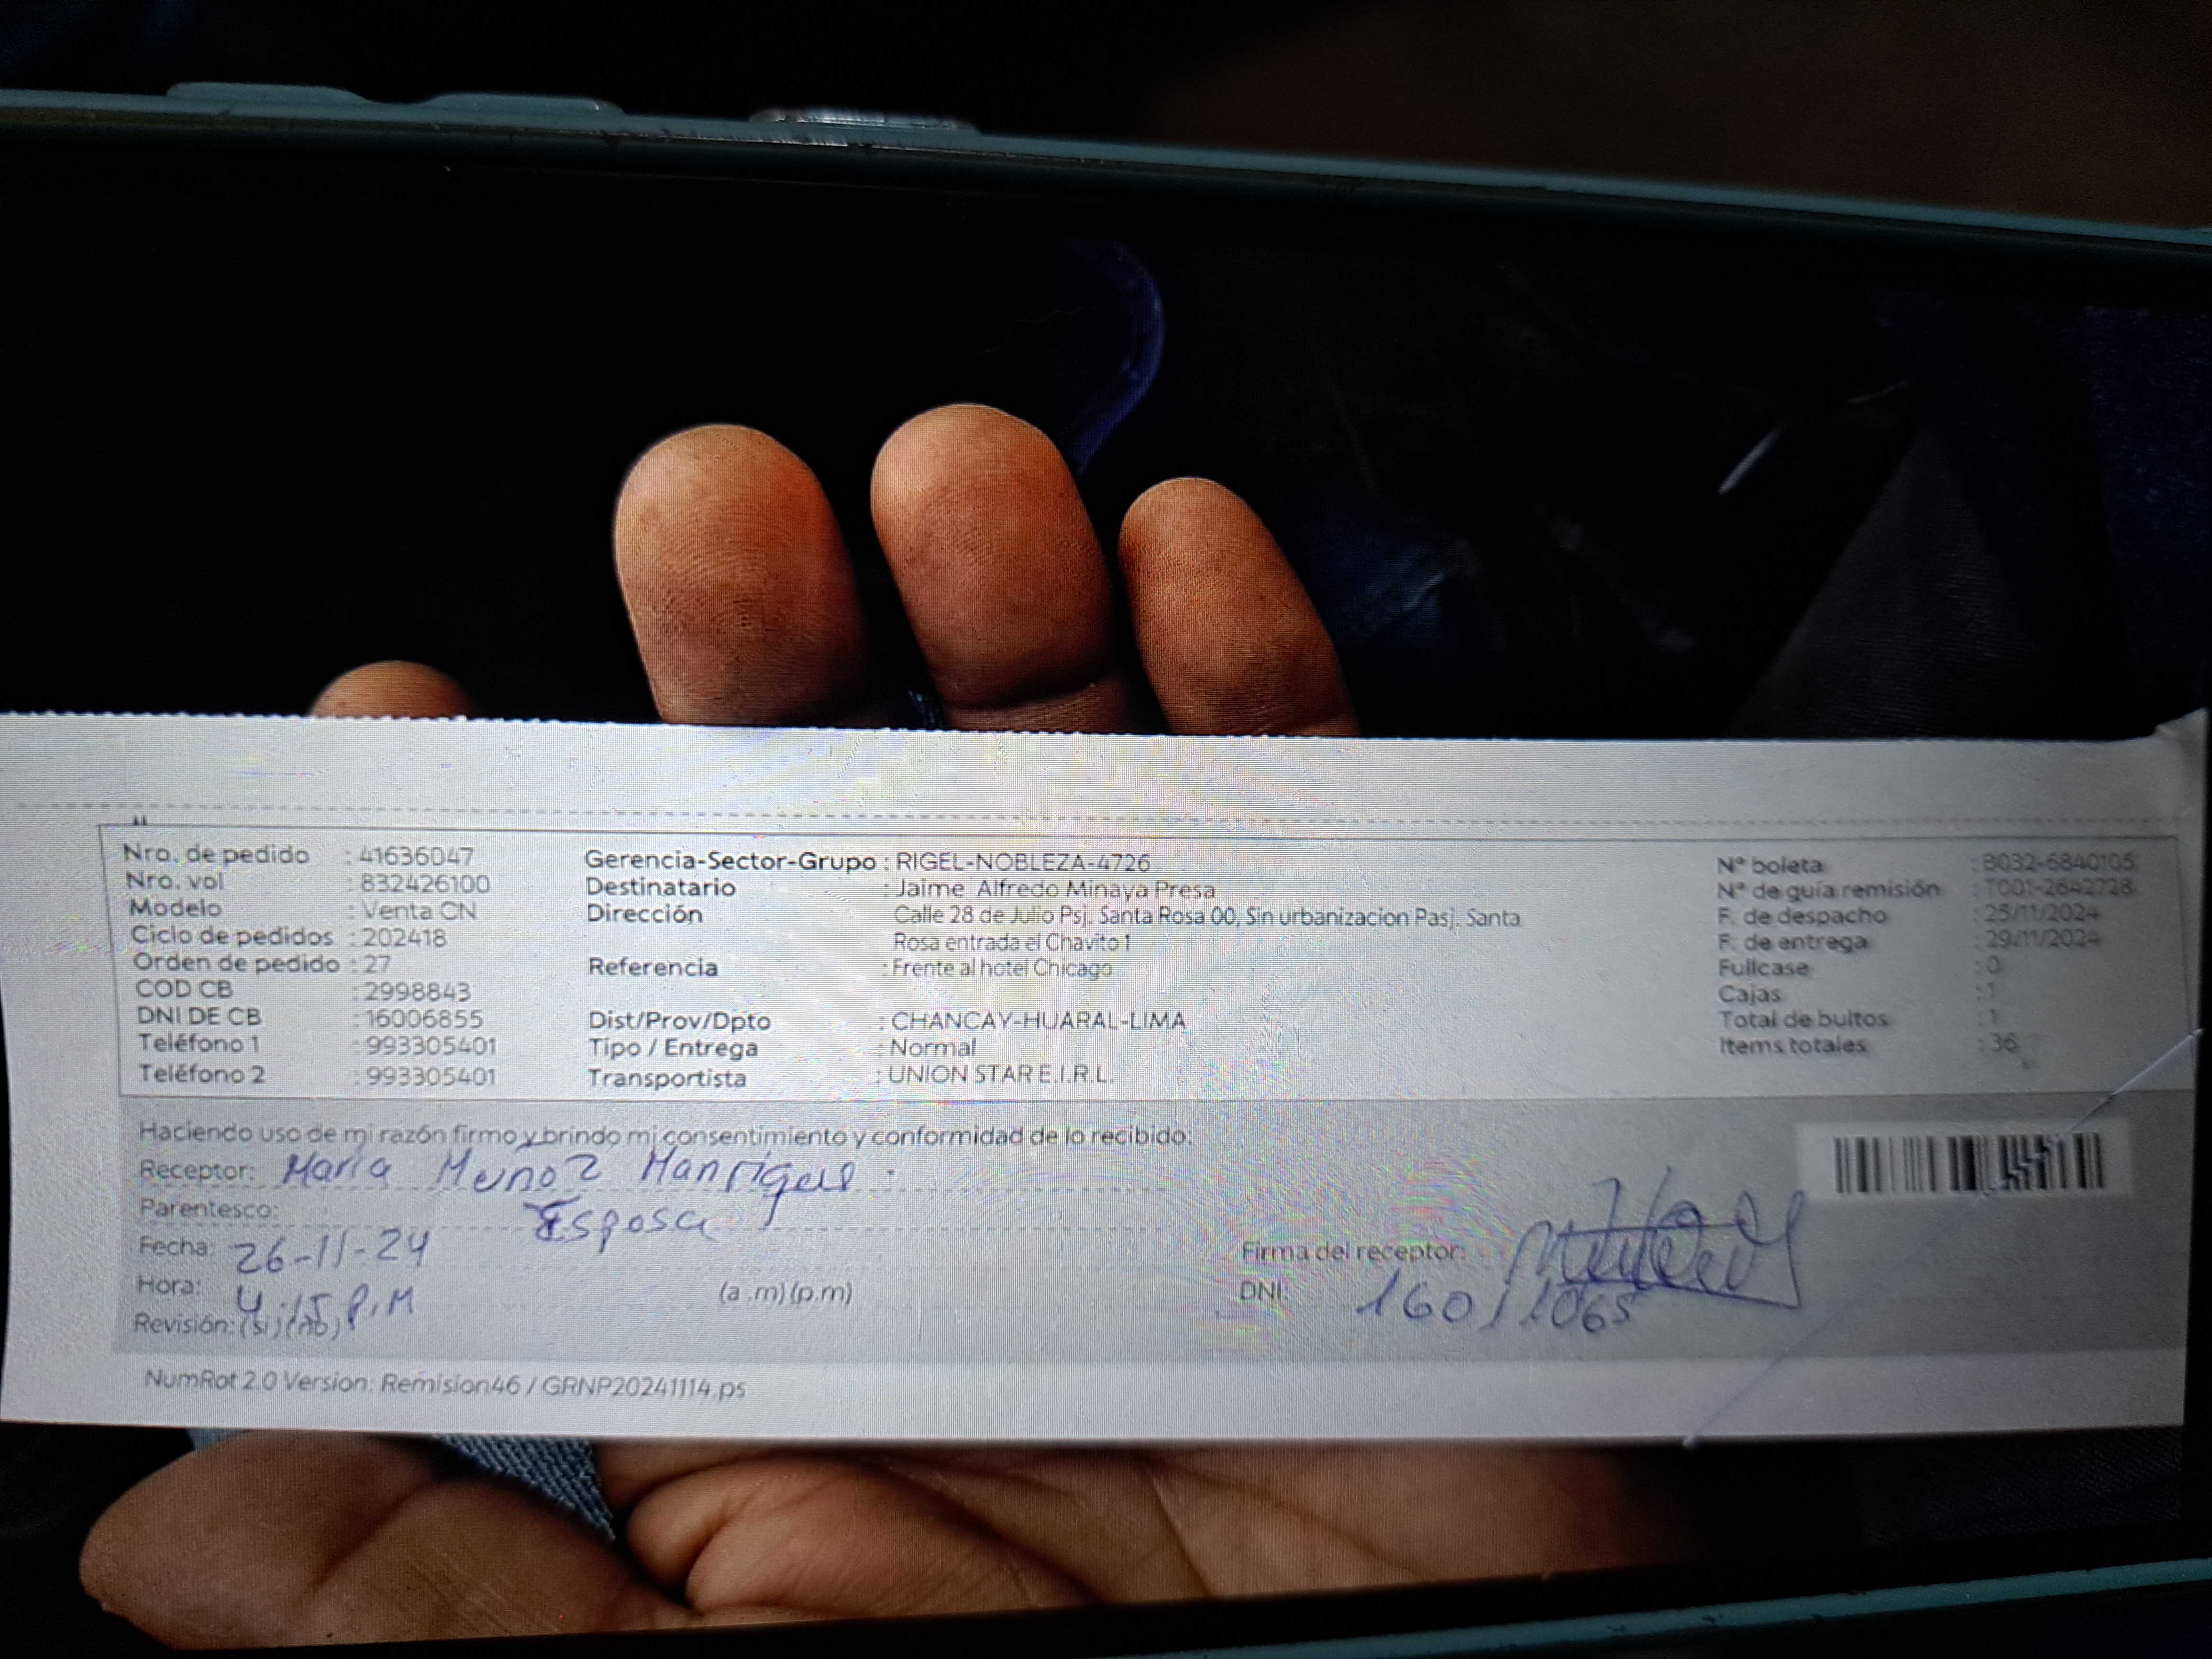 Nro. de pedido : 41636047
Nro. vol : 832426100
Modelo : Venta CN
Ciclo de pedidos : 202418
Orden de pedido : 27
COD CB : 2998843
DNI DE CB : 16006855
Teléfono 1 : 993305401
Teléfono 2 : 993305401
Gerencia-Sector-Grupo : RIGEL-NOBLEZA-4726
Destinatario : Jaime Alfredo Minaya Presa
Dirección Calle 28 de Julio Psj. Santa Rosa 00, Sin urbanizacion Pasj. Santa
Rosa entrada el Chavito 1
Referencia : Frente al hotel Chicago
Dist/Prov/Dpto : CHANCAY-HUARAL-LIMA
Tipo / Entrega : Normal
Transportista : UNION STAR E.I.R.L.
N° boleta : B032-6840105
N° de guía remisión : T001-2642728
F. de despacho : 25/11/2024
F. de entrega : 29/11/2024
Fullcase : 0
Cajas : 1
Total de bultos : 1
Items totales : 36
Haciendo uso de mi razón firmo y brindo mi consentimiento y conformidad de lo recibido:
Receptor: Maria Muñoz Manrique
Parentesco: Esposa
Fecha: 26-11-24
Hora: 4:15 P.M (a .m) (p.m)
Revisión: (si) (no)
Firma del receptor:
DNI: 16011065
NumRot 2.0 Version: Remision46 / GRNP20241114.ps